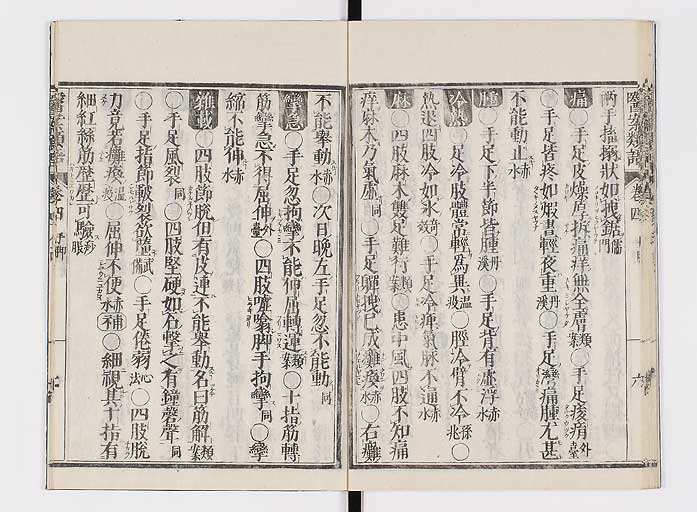 兩手搐搦狀如拽鋸 儒門
痛 ○手足皮燥厚拆痛痒無全膚 類案 ○手足痠痟 外臺
○手足皆疼如蝦晝輕夜重 丹溪 ○手足攣痛腫尤甚
不能動止 水
腫 ○手足下半節皆腫 丹溪 ○手足背有虛浮 赤水
冷熱 ○足冷肢體常輕為異 温疫 ○脛冷臂不冷 孫兆 ○
熱退四肢冷如氷 ○手足冷痺氣脉不通 赤水
麻 ○四肢麻木雙足難行 類案 ○患中風四肢不知痛
痒麻木乃氣虛 同 ○手足 已成癱瘓 赤水 ○右癱
不能舉動 赤水 ○次日晩左手足忽不能動 同
攣急 ○手足忽拘攣不能伸屈轉運 類案 ○十指筋轉
筋攣急不得屈伸 外臺 ○四肢 脚手拘攣 同 ○攣
縮不能伸 赤水
雜載 ○四肢節脱但有皮連不能舉動名曰筋解 類案
○手足風裂 同 ○四肢堅硬如石擊之有鐘磬聲 同
○手足指節皸裂欲墮 ○手足倦弱 心法 ○四肢脱
力竟若癱瘓 温疫 ○屈伸不便 赤水 補 ○細視其十指有
細紅絲筋歴歴可驗 痧脹